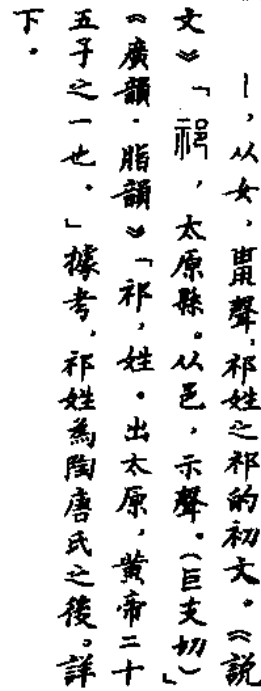 ｜，从女，𤰈聲，祁姓之祁的初文。《說
文》「祁，太原縣。从邑，示聲。（巨支切）」
《廣韻·脂韻》「祁，姓。出太原，黃帝二十
五子之一也。」據考，祁姓為陶唐氏之後。詳
下。